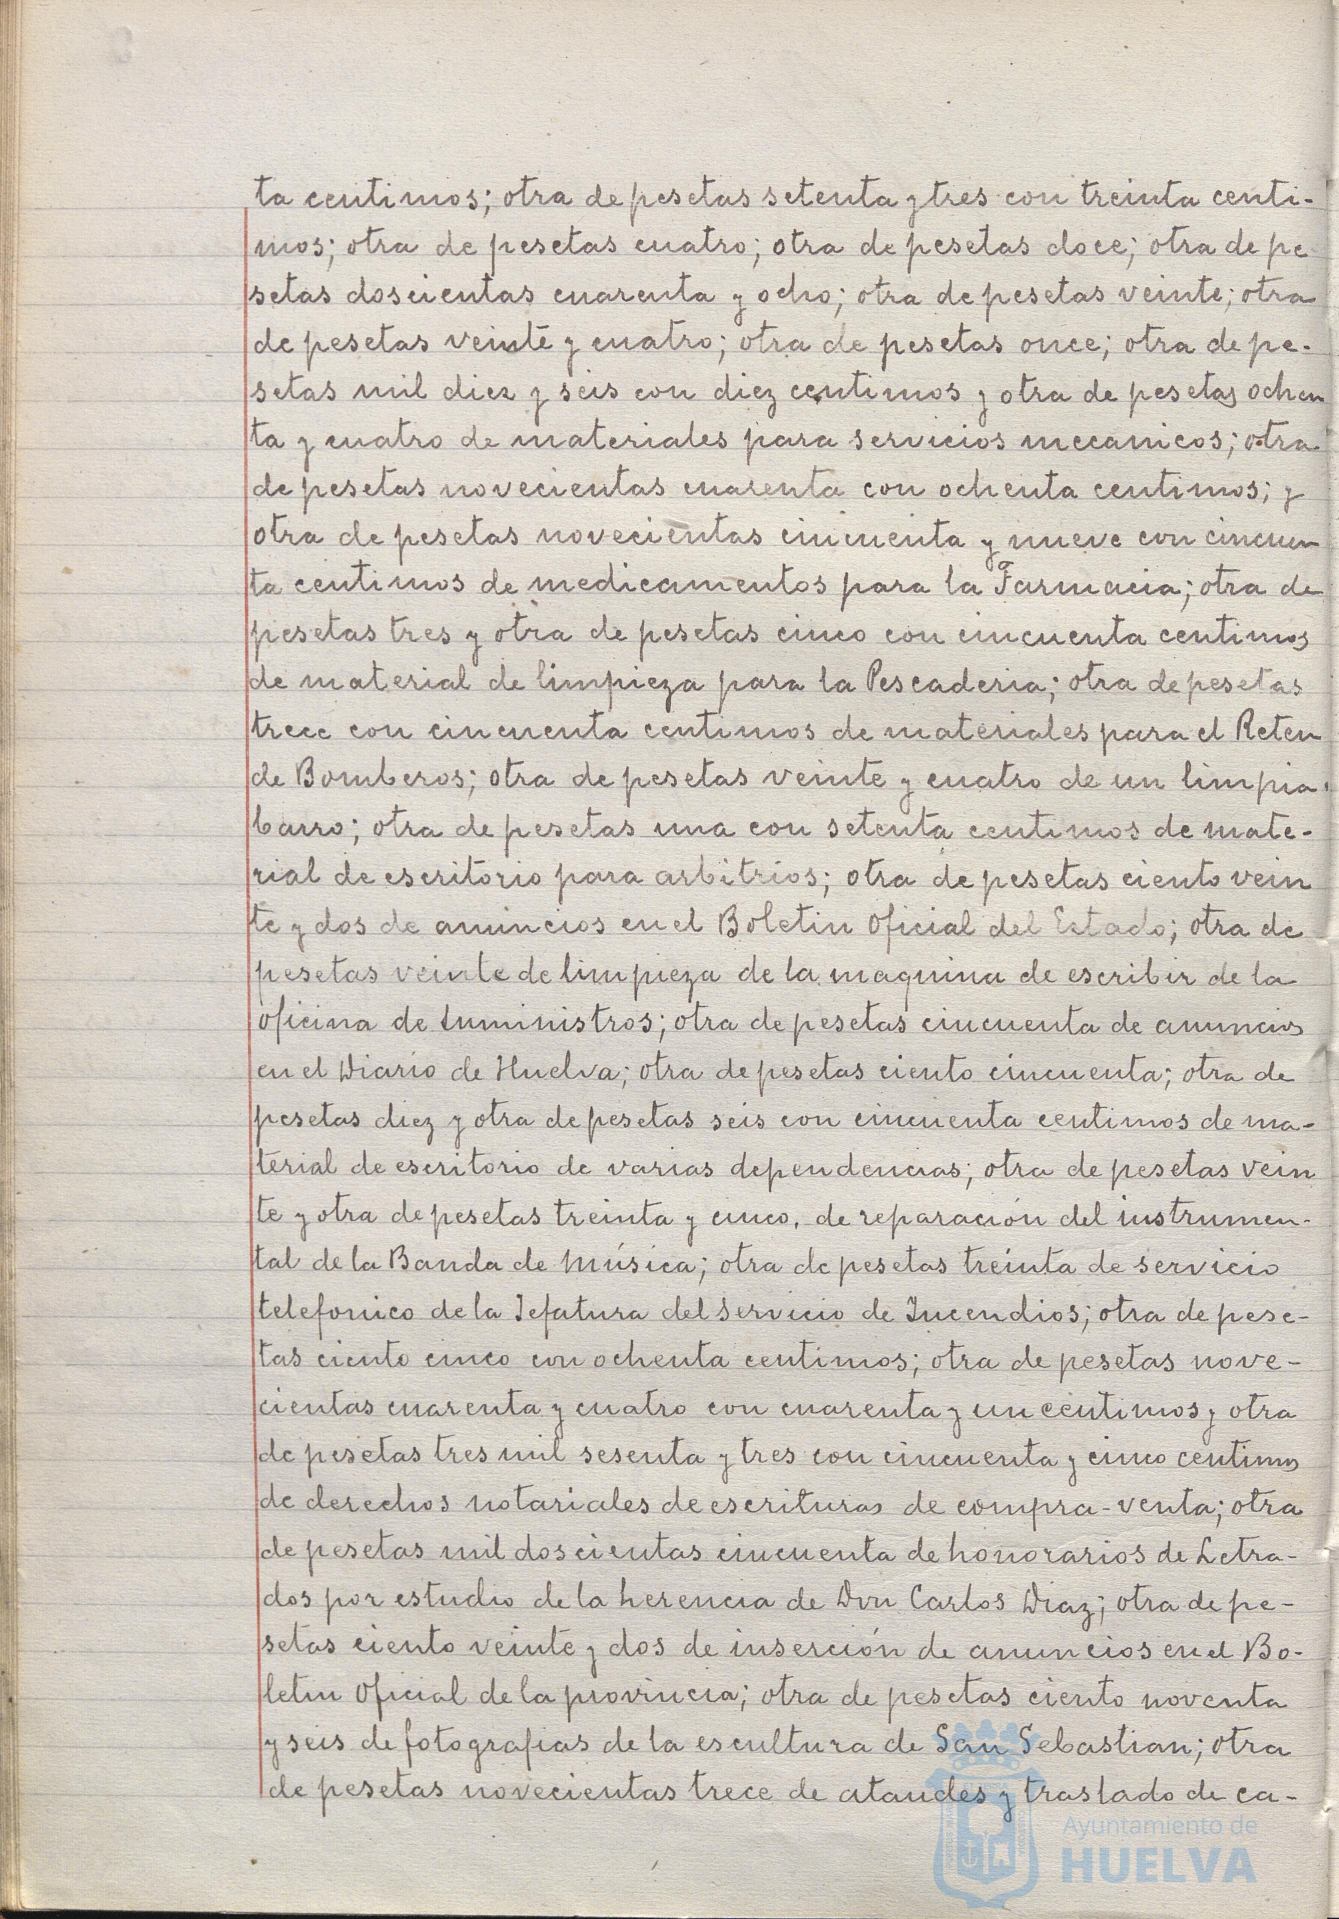 ta centimos; otra de pesetas setenta y tres con treinta centi-
mos; otra de pesetas cuatro; otra de pesetas doce; otra de pe
setas doscientas cuarenta y ocho; otra de pesetas veinte; otra
de pesetas veinte y cuatro; otra de pesetas once; otra de pe-
setas mil diez y seis con diez centimos y otra de pesetas ochen
ta y cuatro de materiales para servicios mecanicos; otra
de pesetas novecientas cuarenta con ochenta centimos; y
otra de pesetas novecientas cincuenta y nueve con cincuen
ta centimos de medicamentos para la Farmacia; otra de
pesetas tres y otra de pesetas cinco con cincuenta centimos
de material de limpieza para la Pescaderia; otra de pesetas
trece con cincuenta centimos de materiales para el Reten
de Bomberos; otra de pesetas veinte y cuatro de un limpia-
barro; otra de pesetas una con setenta centimos de mate-
rial de escritorio para arbitrios; otra de pesetas ciento vein
te y dos de anuncios en el Boletin Oficial del Estado; otra de
pesetas veinte de limpieza de la maquina de escribir de la
oficina de Suministros; otra de pesetas cincuenta de anuncios
en el Diario de Huelva; otra de pesetas ciento cincuenta; otra de
pesetas diez y otra de pesetas seis con cincuenta centimos de ma-
terial de escritorio de varias dependencias; otra de pesetas vein
te y otra de pesetas treinta y cinco, de reparación del instrumen-
tal de la Banda de Música; otra de pesetas treinta de servicio
telefonico de la Jefatura del Servicio de Incendios; otra de pese-
tas ciento cinco con ochenta centimos; otra de pesetas nove-
cientas cuarenta y cuatro con cuarenta y un centimos y otra
de pesetas tres mil sesenta y tres con cincuenta y cinco centimos
de derechos notariales de escrituras de compra-venta; otra
de pesetas mil doscientas cincuenta de honorarios de Letra-
dos por estudio de la herencia de Don Carlos Diaz; otra de pe-
setas ciento veinte y dos de inserción de anuncios en el Bo-
letin Oficial de la provincia; otra de pesetas ciento noventa
y seis de fotografias de la escultura de San Sebastian; otra
de pesetas novecientas trece de ataudes y traslado de ca-
Ayuntamiento de
HUELVA